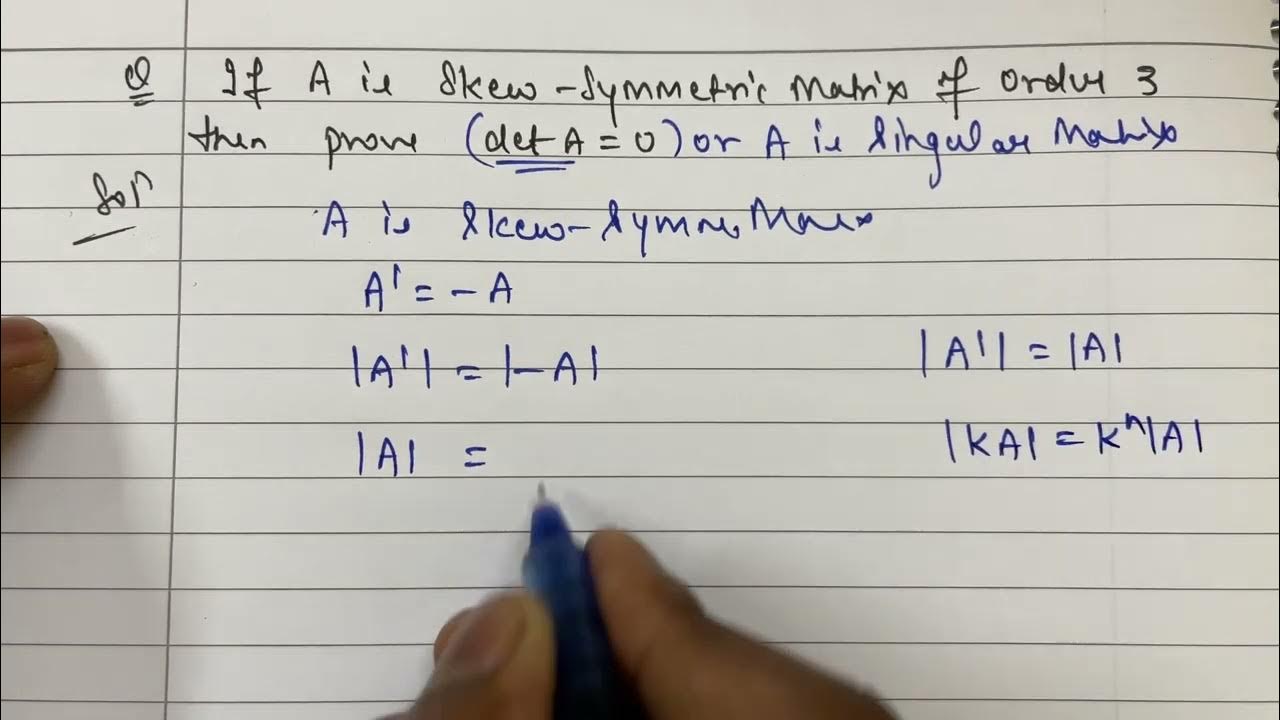 Q If A is Skew-Symmetric Matrix of order 3
then prove (det A = 0) or A is Singular Matrix
Sol
A is Skew-Symme Matrix
A' = -A
|A'| = |-A| |A'| = |A|
|A| = |KA| = Kⁿ|A|